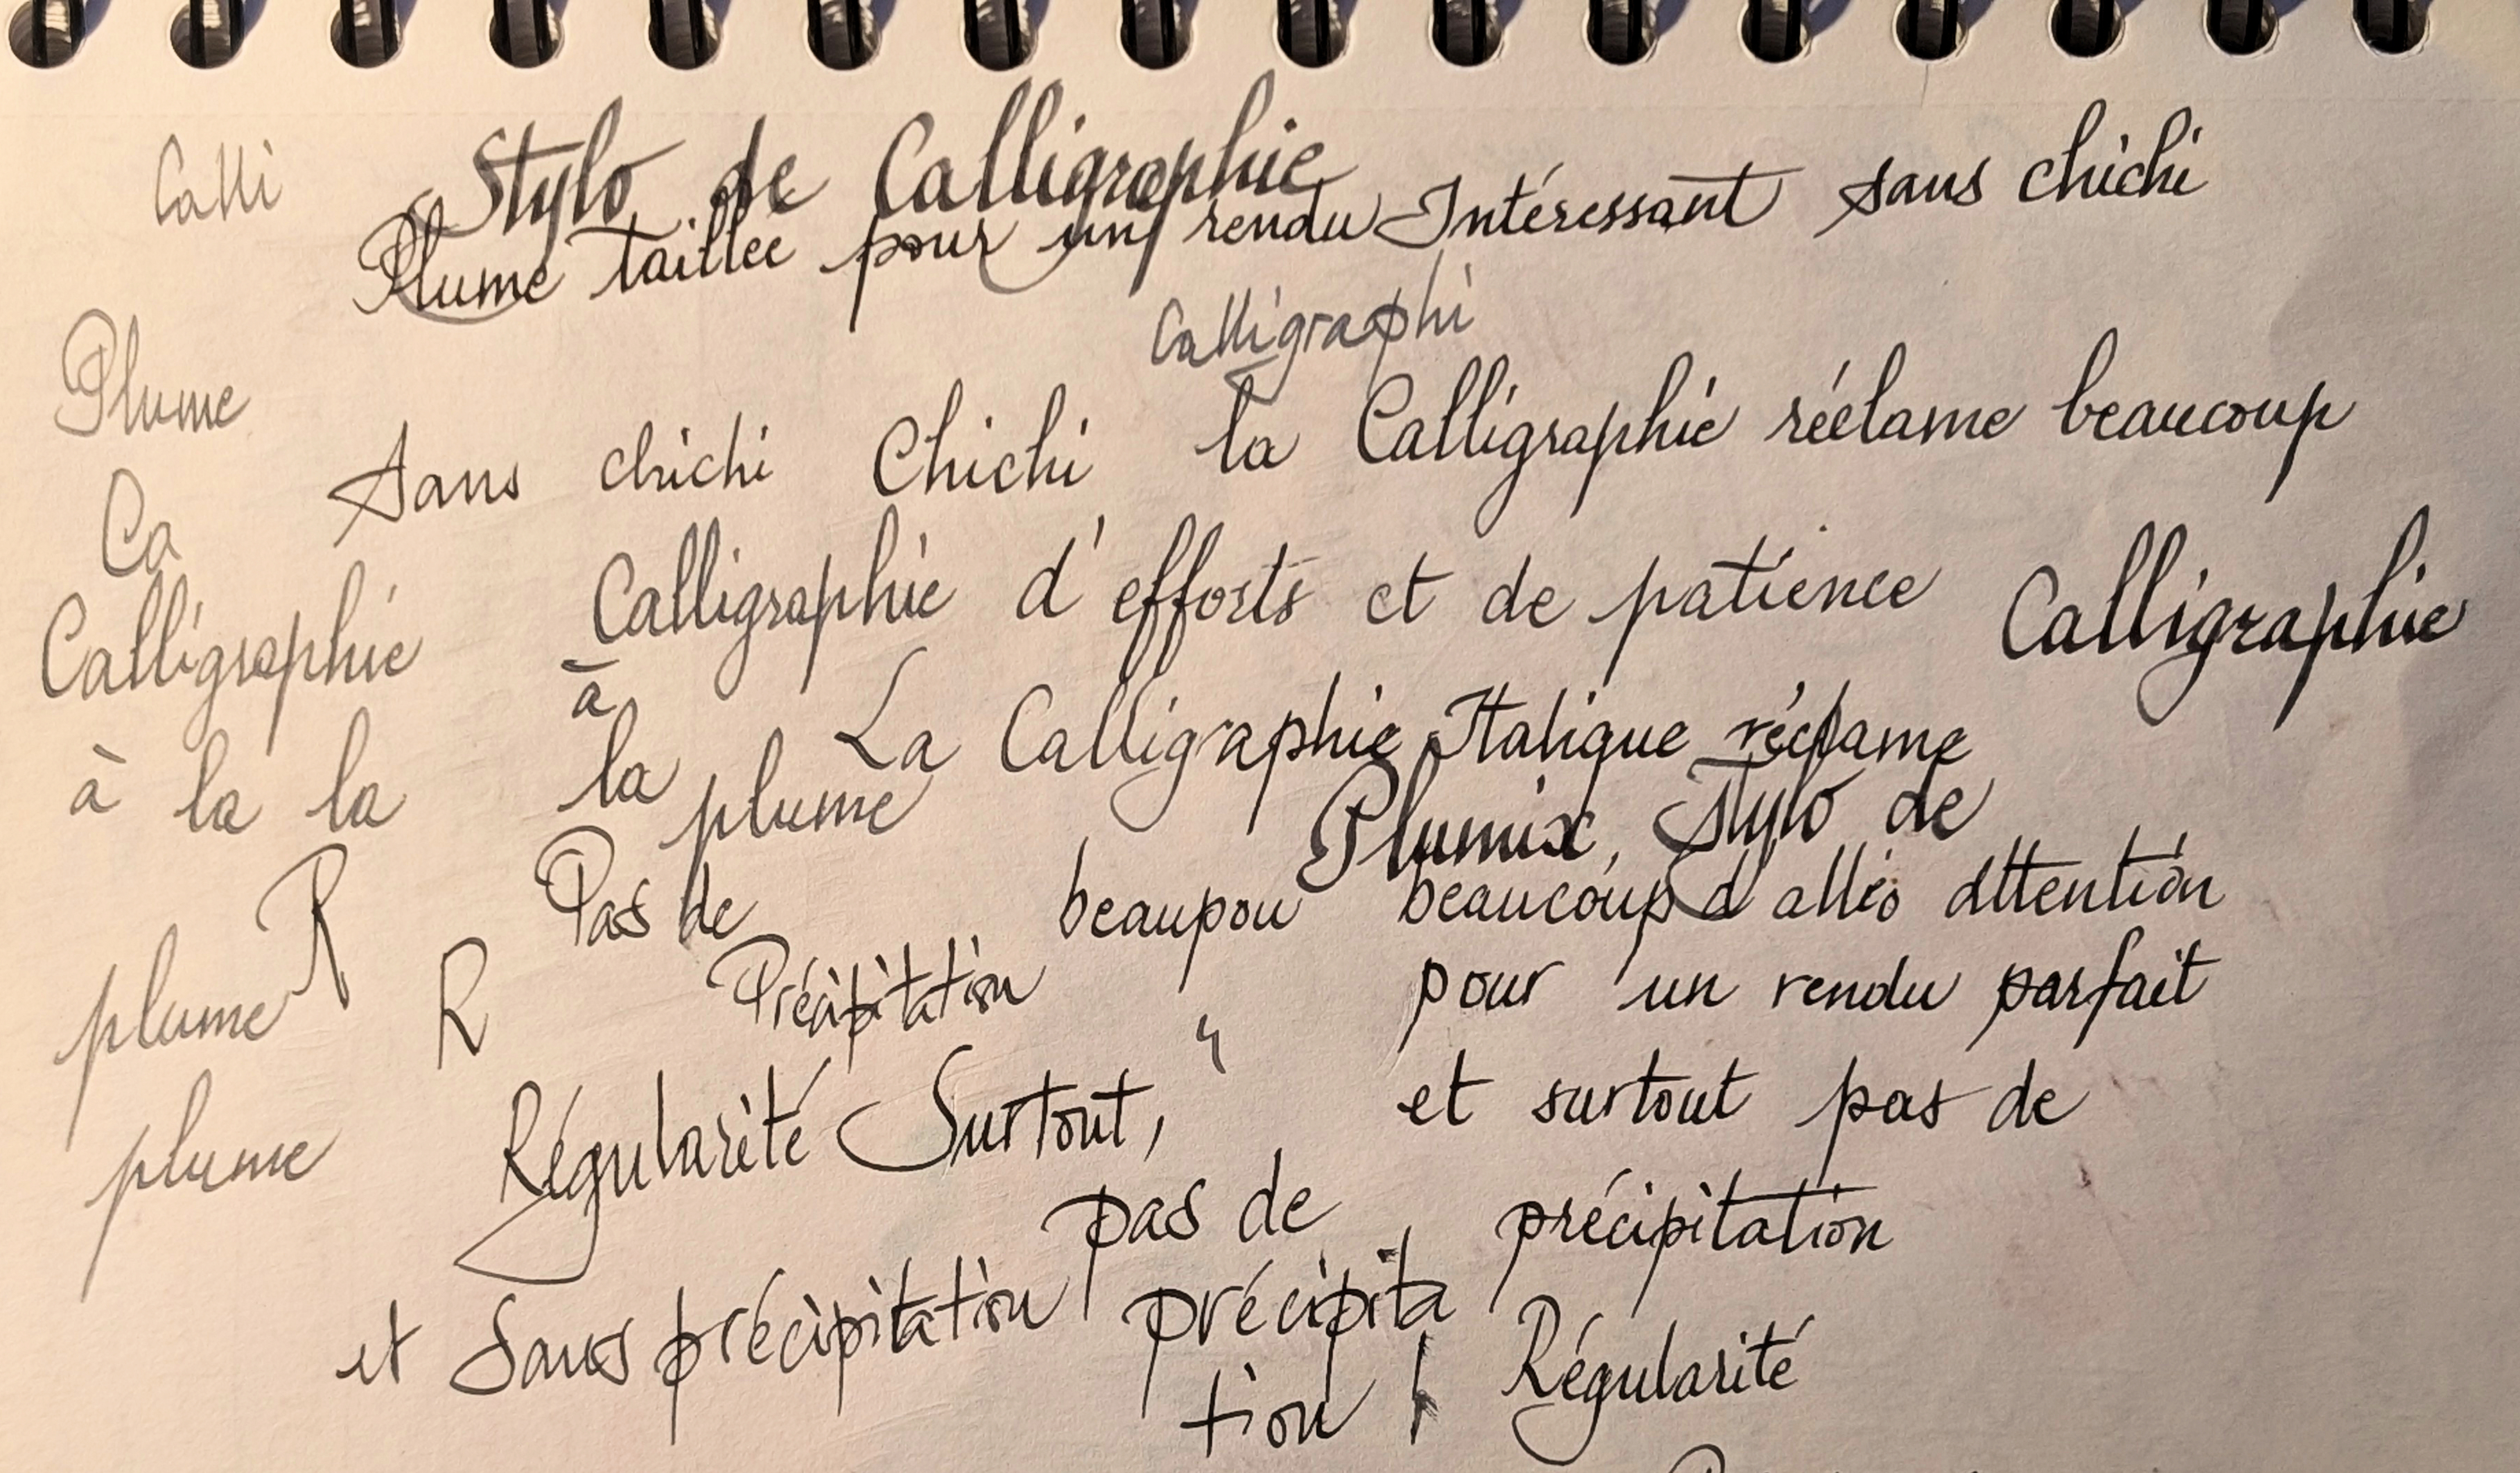 Calli Stylo de Calligraphie
Plume taillée pour un rendu Intéressant sans chichi
Calligraphi
Plume
Sans chichi Chichi la Calligraphie réclame beaucoup
Ca
Calligraphie Calligraphie d'efforts et de patience Calligraphie
à
La Calligraphie Italique réclame
à la la la plume
Plumix, Stylo de
R Pas de beaupou beaucoup d attention
plume R Précipitation pour un rendu parfait
Régularité Surtout, et surtout pas de
plume
pas de précipitation
et Sans précipitation précipita
tion Régularité